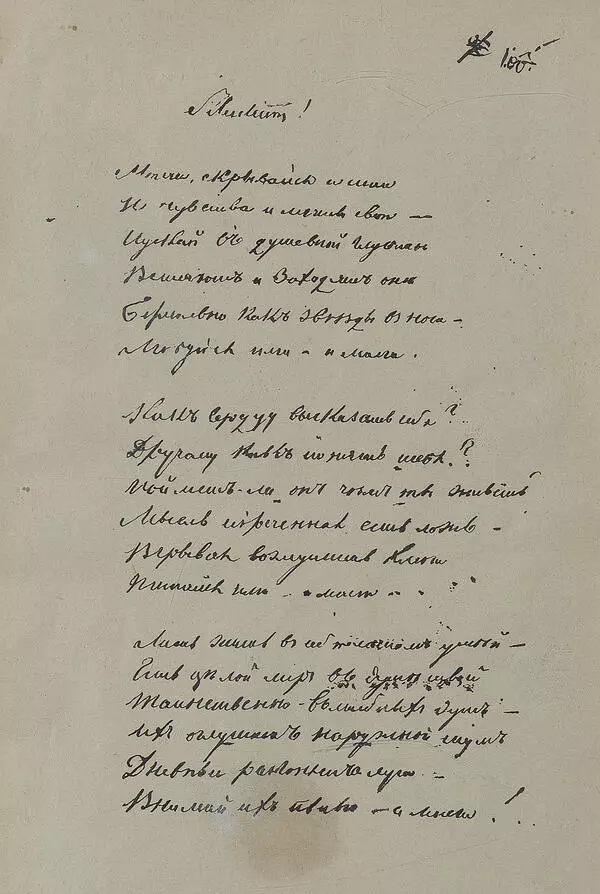 100.
Silentium!
Молчи, скрывайся и таи
И чувства и мечты свои —
Пускай въ душевной глубинѣ
Встаютъ и заходятъ онѣ
Безмолвно какъ звѣзды въ ночи —
Любуйся ими — и молчи.
Какъ сердцу высказать себя?
Другому какъ понять тебя?
Пойметъ-ли онъ чѣмъ ты живешь
Мысль изреченная есть ложь —
Взрывая возмутишь ключи
Питайся ими — и молчи —
Лишь жить въ себѣ самомъ умѣй —
Есть цѣлой міръ въ душѣ твоей
Таинственно-волшебныхъ думъ —
Ихъ оглушитъ наружной шумъ
Дневные разгонятъ лучи —
Внимай ихъ пѣнью — и молчи!